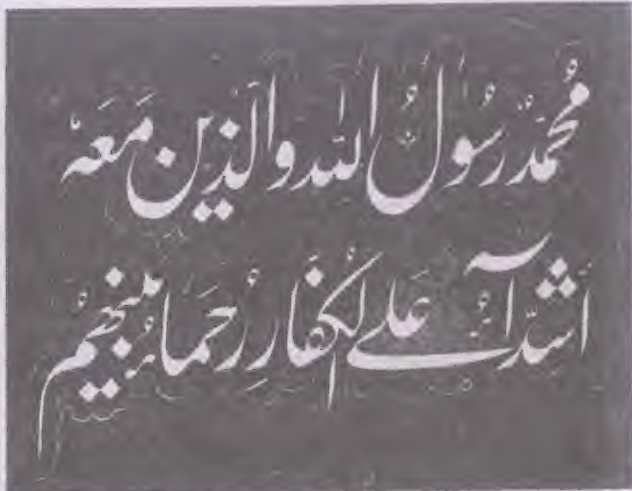 محمد رسول الله والذین معه
اشدآء علے الکفار رحماء بینهم